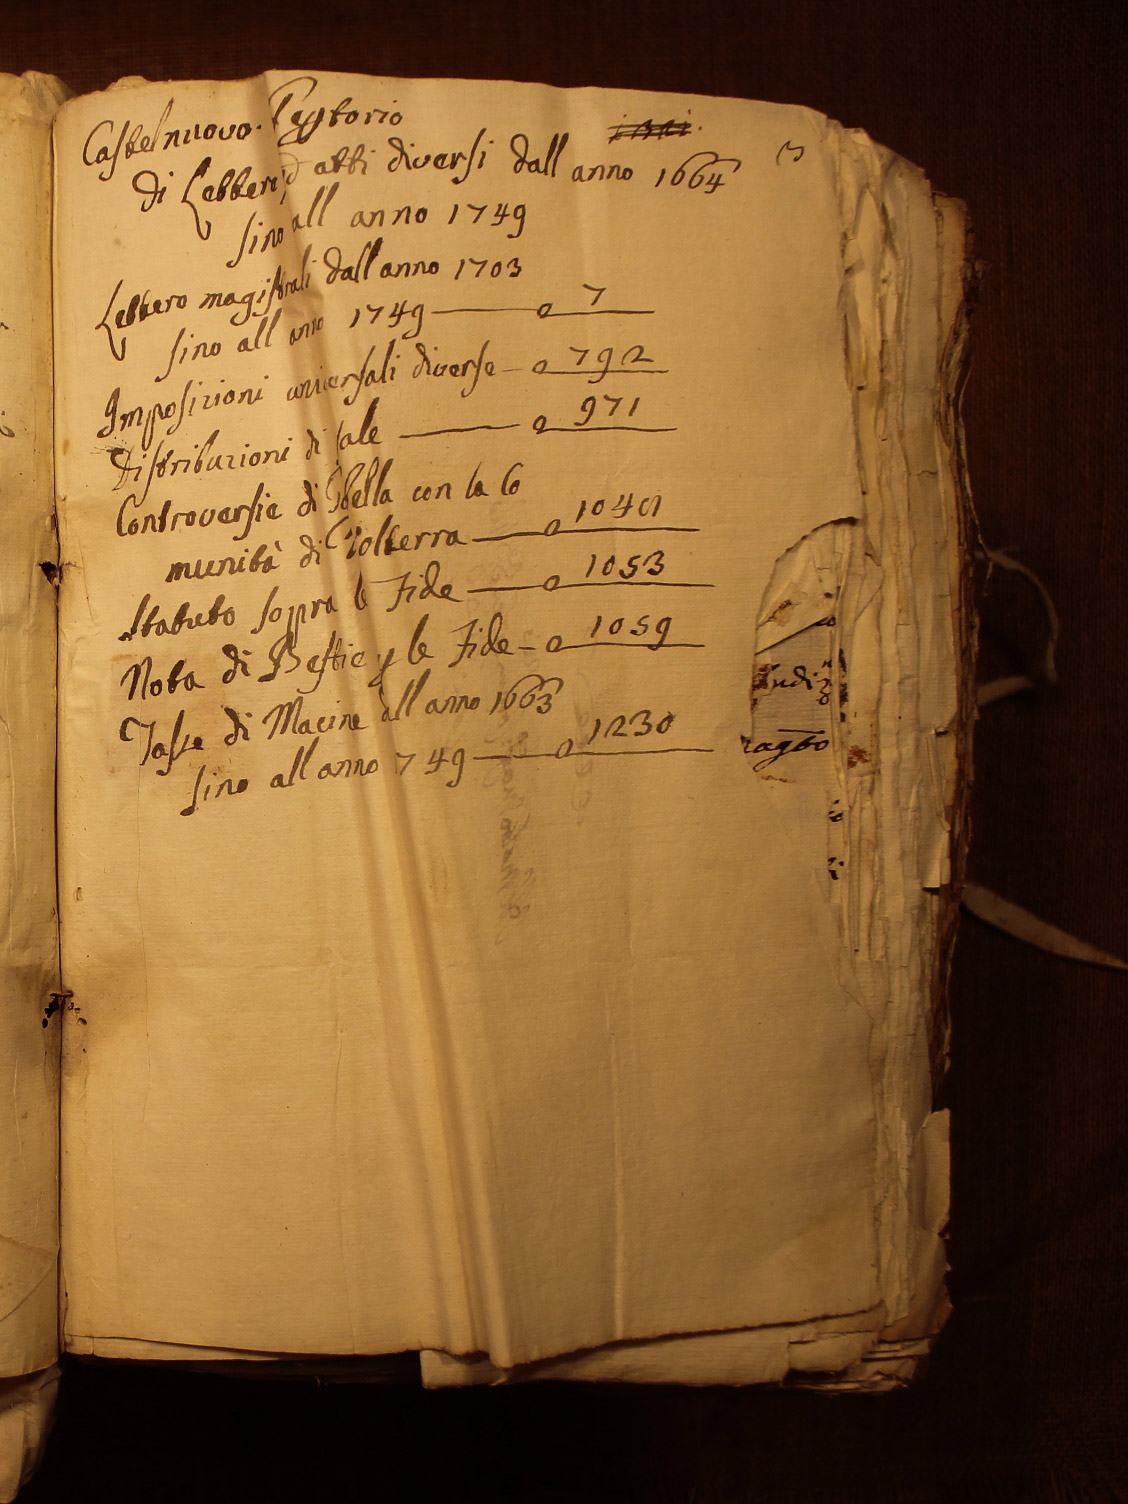 Castelnuovo. Registorio
di Lettere, d atti diversi dall anno 1664
sino all anno 1749
3
Lettere magistrali dall anno 1703
sino all anno 1749 — a 7
Imposizioni universali diverse — a 792
Distribuzioni di sale — a 971
Controversie di Gello con la Co
munità di Volterra — a 1040
Statuto sopra le Fide — a 1053
Nota di Bestie p le Fide — a 1059
Tasse di Macine all anno 1663
sino all anno 749 — a 1230
Indiz